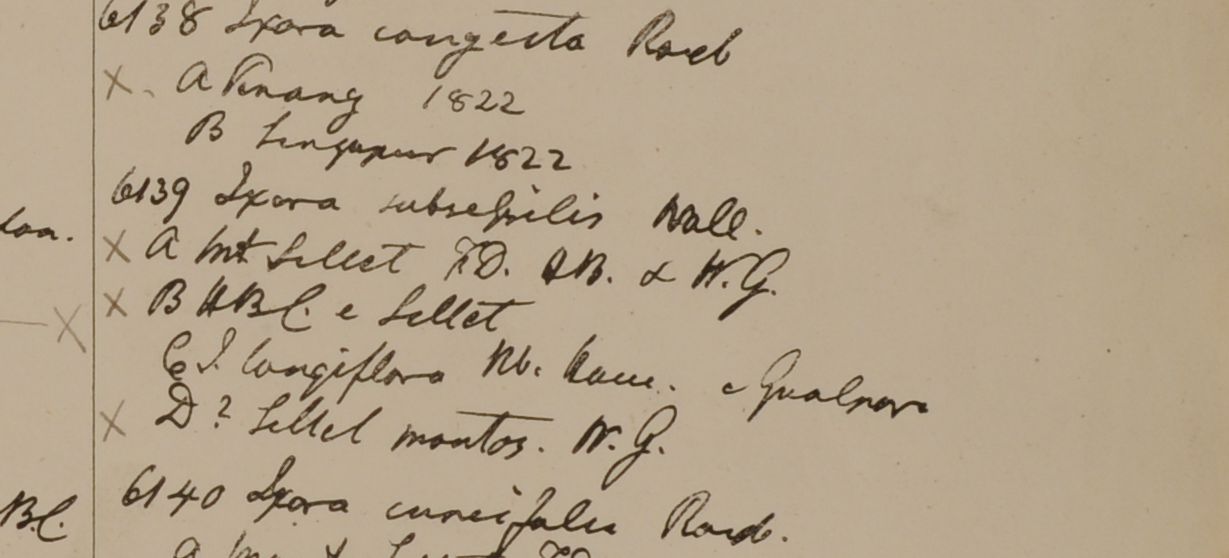 6138 Ixora congesta Roxb
X. A Penang 1822
B Singapur 1822
6139 Ixora subsessilis Wall.
X A Mt Sillet F.D. HB. & W.G.
X B HBC. e Sillet
C I. longiflora Rb. e Gualpara
X D? Sillet montos. W.G.
6140 Ixora cuneifolia Roxb.
BC.